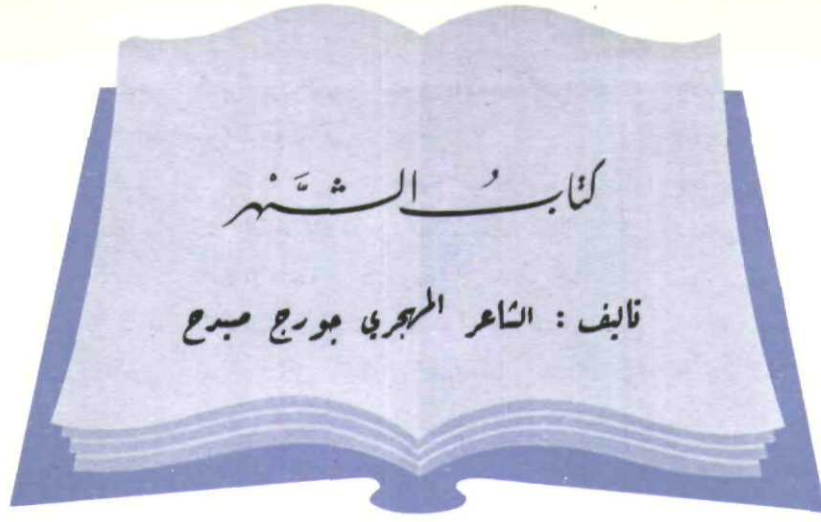 كتابُ الشَّهْر
تأليف : الشاعر المهجري جورج صيدح